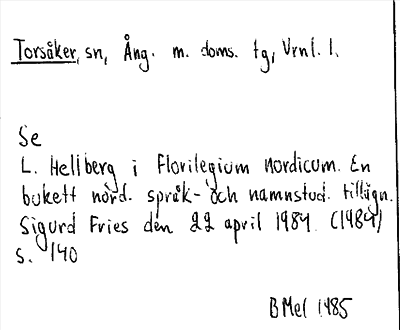 Torsåker, sn, Ång. m. doms. tg, Vrnl. l.
Se
L. Hellberg i Florilegium Nordicum. En
bukett nord. språk- och namnstud. tillägn.
Sigurd Fries den 22 april 1984. (1984)
s. 140
B Mel 1985